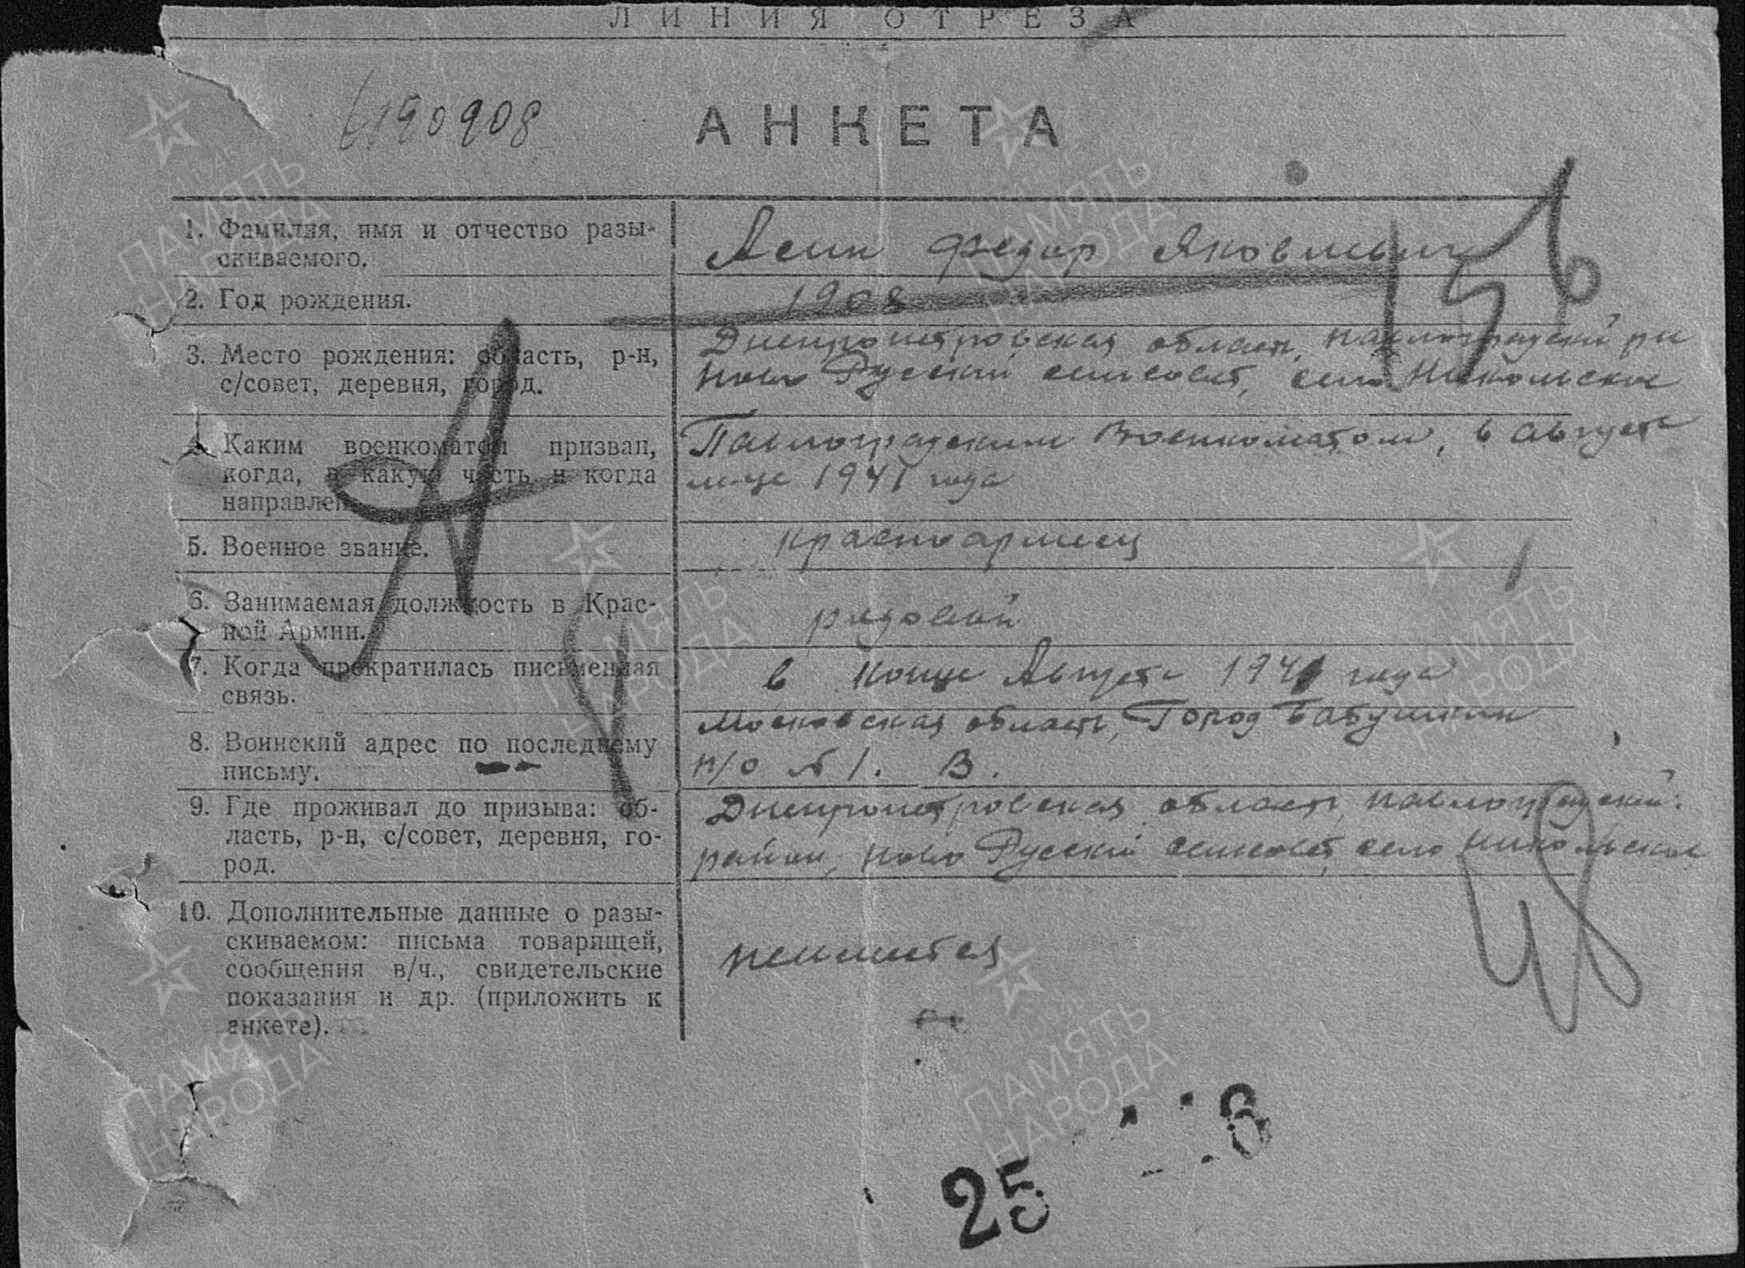 ЛИНИЯ ОТРЕЗА
АНКЕТА
1. Фамилия, имя и отчество разы-
скиваемого.
Асин Федор Яковлевич
2. Год рождения.
1908
3. Место рождения: область, р-н,
с/совет, деревня, город.
Днепропетровская область, Павлоградский рн
Ново Русский сельсовет, село Никольское
4. Каким военкоматом призван,
когда, в какую часть и когда
направлен
Павлоградским Военкоматом, в августе
м-це 1941 года
5. Военное звание.
красноармеец
6. Занимаемая должность в Крас-
ной Армии.
рядовой
7. Когда прекратилась письменная
связь.
в конце Августа 1941 года
8. Воинский адрес по последнему
письму.
Московская область, Город Бабушкин
п/о № 1. В.
9. Где проживал до призыва: об-
ласть, р-н, с/совет, деревня, го-
род.
Днепропетровская область, Павлоградский
район, Ново Русский сельсовет, село Никольское
10. Дополнительные данные о разы-
скиваемом: письма товарищей,
сообщения в/ч., свидетельские
показания и др. (приложить к
анкете).
неимеется
25
ПАМЯТЬ
НАРОДА
ПАМЯТЬ
НАРОДА
ПАМЯТЬ
НАРОДА
ПАМЯТЬ
НАРОДА
ПАМЯТЬ
НАРОДА
ПАМЯТЬ
НАРОДА